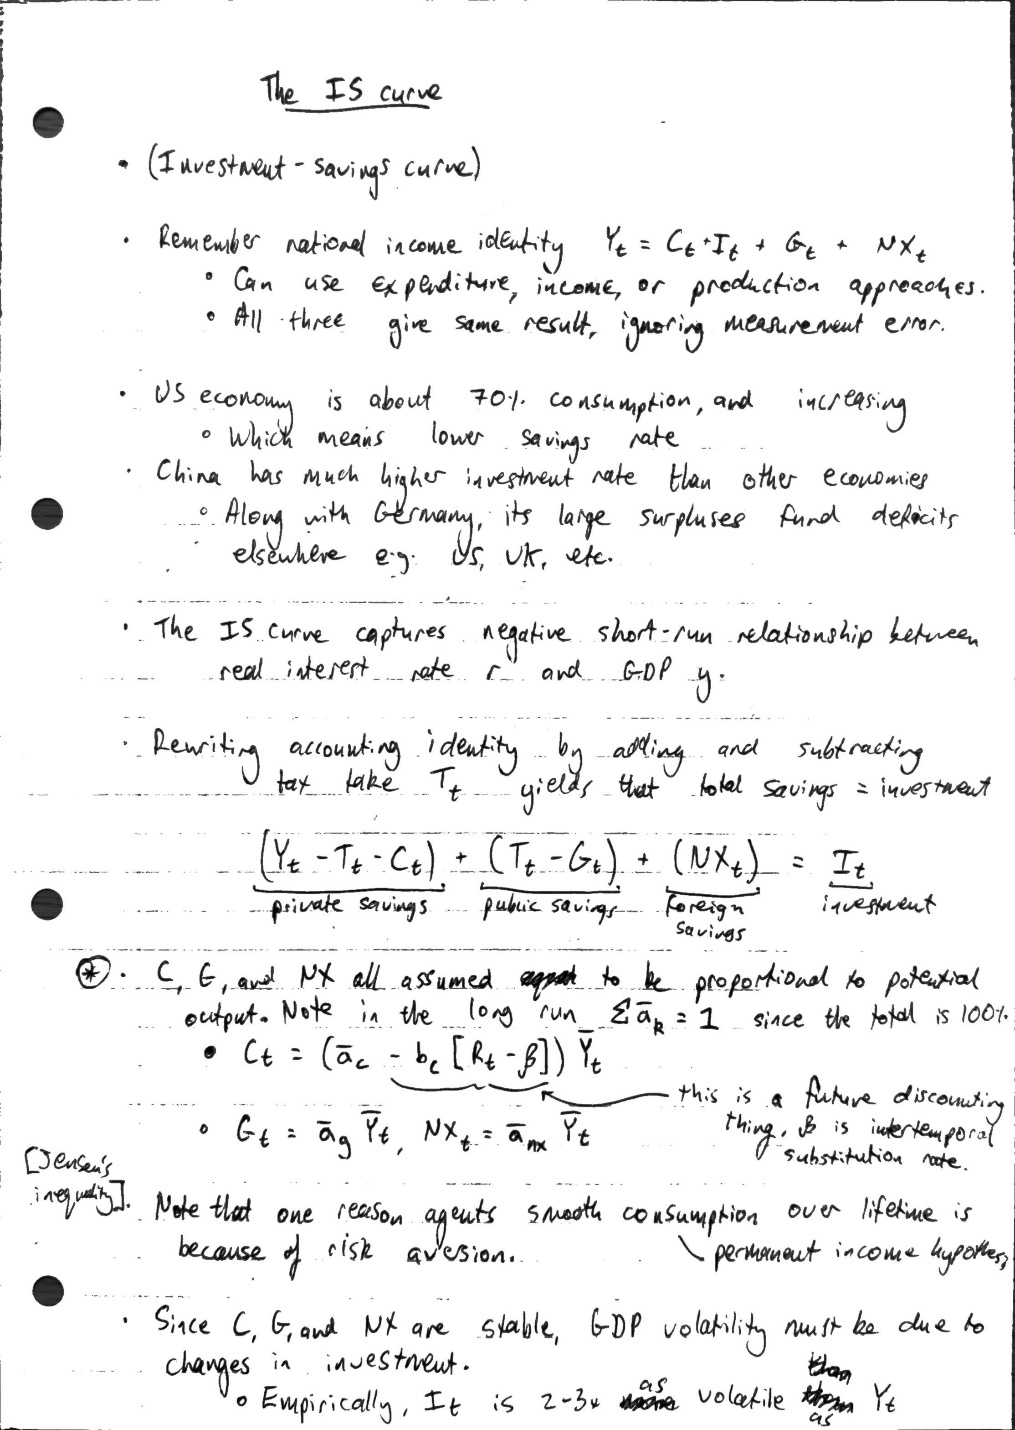 The IS curve
• (Investment - savings curve)
• Remember national income identity Y_t = C_t + I_t + G_t + NX_t
◦ Can use expenditure, income, or production approaches.
◦ All three give same result, ignoring measurement error.
• US economy is about 70% consumption, and increasing
◦ Which means lower savings rate
• China has much higher investment rate than other economies
◦ Along with Germany, its large surpluses fund deficits
elsewhere e.g. US, UK, etc.
• The IS curve captures negative short-run relationship between
real interest rate r and GDP y.
• Rewriting accounting identity by adding and subtracting
tax take T_t yields that total savings = investment
(Y_t - T_t - C_t) + (T_t - G_t) + (NX_t) = I_t
private savings public savings foreign investment
savings
⊛ • C, G, and NX all assumed to be proportional to potential
output. Note in the long run Σ ā_k = 1 since the total is 100%
• C_t = (ā_c - b_c [R_t - β]) Ȳ_t
this is a future discounting
thing, β is intertemporal
substitution rate.
◦ G_t = ā_g Ȳ_t, NX_t = ā_nx Ȳ_t
[Jensen's
inequality].
Note that one reason agents smooth consumption over lifetime is
because of risk aversion. \ permanent income hypothesis
• Since C, G, and NX are stable, GDP volatility must be due to
changes in investment.
◦ Empirically, I_t is 2-3x as volatile as Y_t